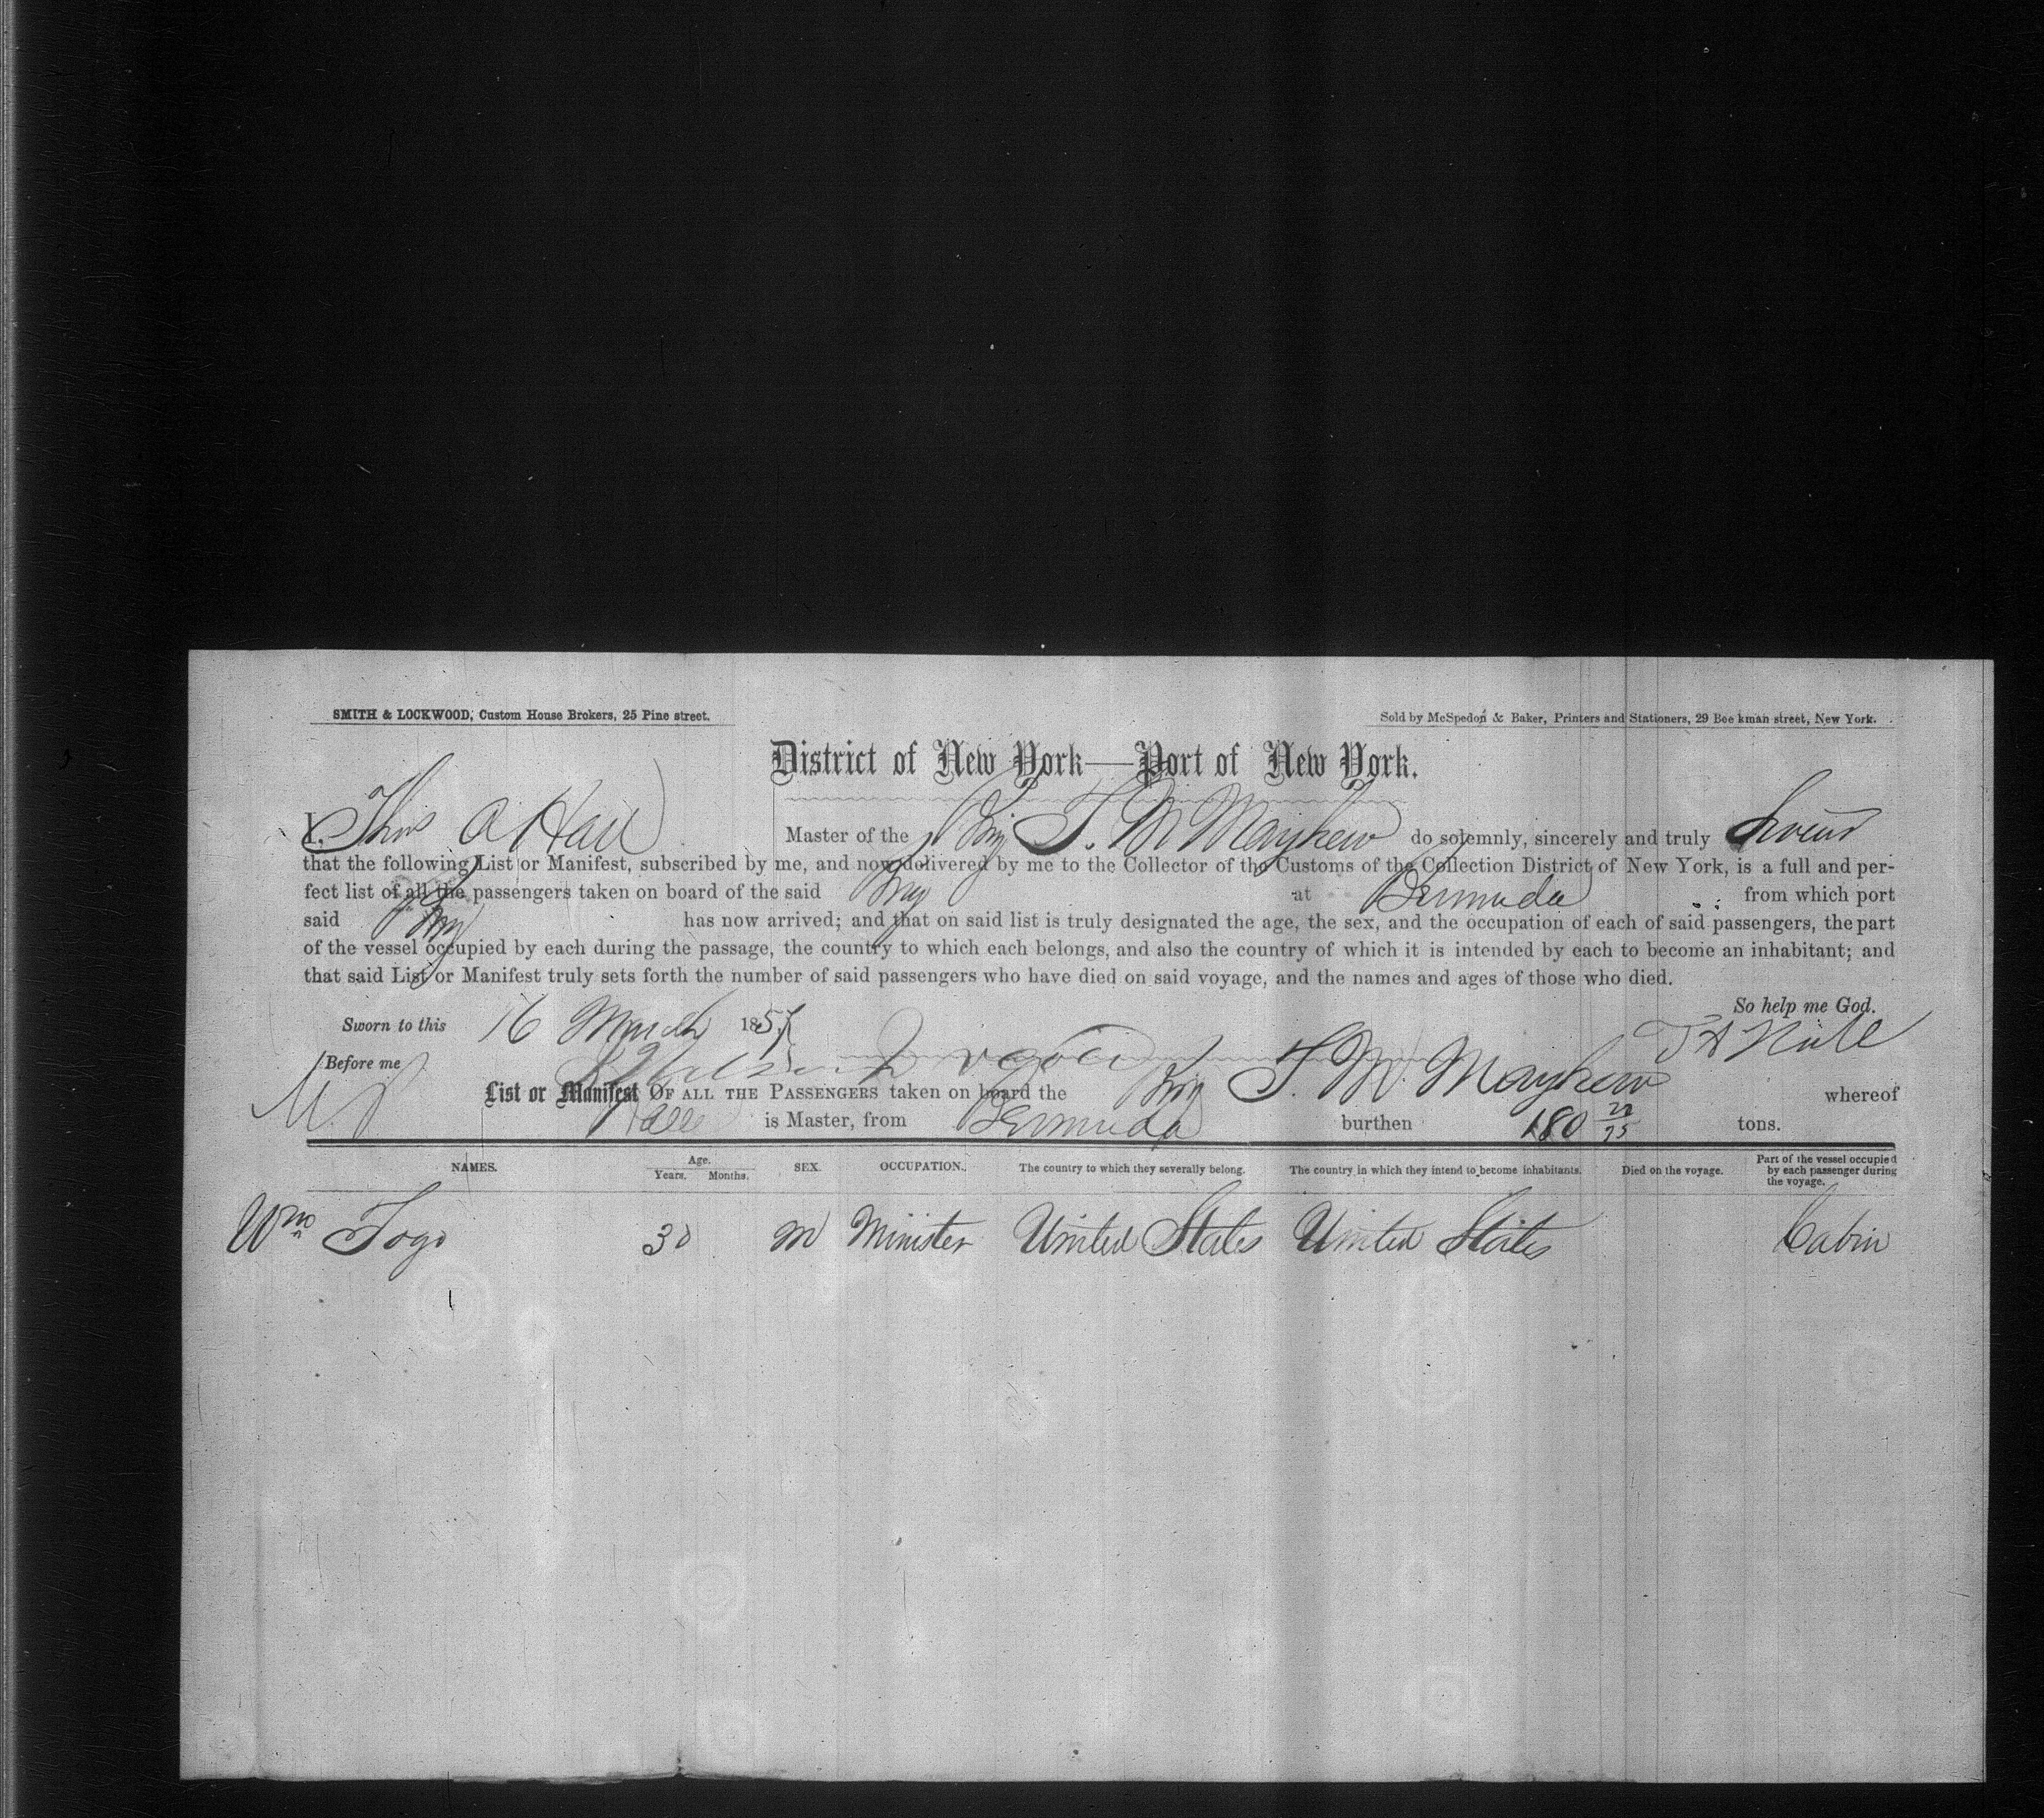 SMITH & LOCKWOOD, Custom House Brokers, 25 Pine street.
Sold by McSpedon & Baker, Printers and Stationers, 29 Bee kman street, New York.
District of New York—Port of New York.
I, Thos A Hall Master of the Brig T. M Mayhew do solemnly, sincerely and truly swear
that the following List or Manifest, subscribed by me, and now delivered by me to the Collector of the Customs of the Collection District of New York, is a full and per-
fect list of all the passengers taken on board of the said Brig at Bermuda from which port
said Brig has now arrived; and that on said list is truly designated the age, the sex, and the occupation of each of said passengers, the part
of the vessel occupied by each during the passage, the country to which each belongs, and also the country of which it is intended by each to become an inhabitant; and
that said List or Manifest truly sets forth the number of said passengers who have died on said voyage, and the names and ages of those who died.
So help me God.
Sworn to this 16 March 1857
Before me
List or Manifest OF ALL THE PASSENGERS taken on board the Brig T. M. Mayhew whereof
is Master, from Bermuda burthen 180 tons.
NAMES. Age. Years. Months. SEX. OCCUPATION. The country to which they severally belong. The country in which they intend to become inhabitants. Died on the voyage. Part of the vessel occupied by each passenger during the voyage.
Wm 30 M Minister United States United States Cabin